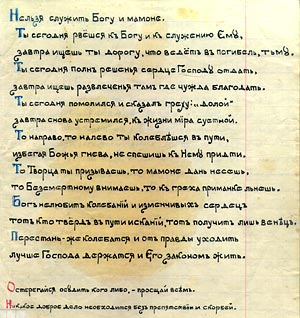 Нельзя служить Богу и мамоне.
Ты сегодня рвёшся къ Богу и къ служению Ему,
завтра ищешь ты дорогу, что ведётъ въ погибель, тьму.
Ты сегодня полнъ решенья сердце Господу отдать,
завтра ищешь развлеченья тамъ где чужда благодать.
Ты сегодня помолился и сказалъ греху:.. „долой"
завтра снова устремился къ жизни мiра суетной.
То направо, то налево ты колеблешься въ пути,
избегая Божья гнева, не спешишь къ Нему придти.
То Творца ты призываешь, то мамоне дань несешь,
то Безсмертному внимаешь, то къ греха приманке льнешь.
Богъ нелюбитъ колебанiй и изменчивыхъ сердецъ
тотъ кто твёрдъ въ пути исканiй, тотъ получитъ лишь венецъ.
Перестань-же колебатся и отъ правды уходить
лучше Господа держатся и Его закономъ жить.
Остерегайся осудить кого либо, - прощай всемъ.
Никакое доброе дело необходится безъ препятствiй и скорбей.